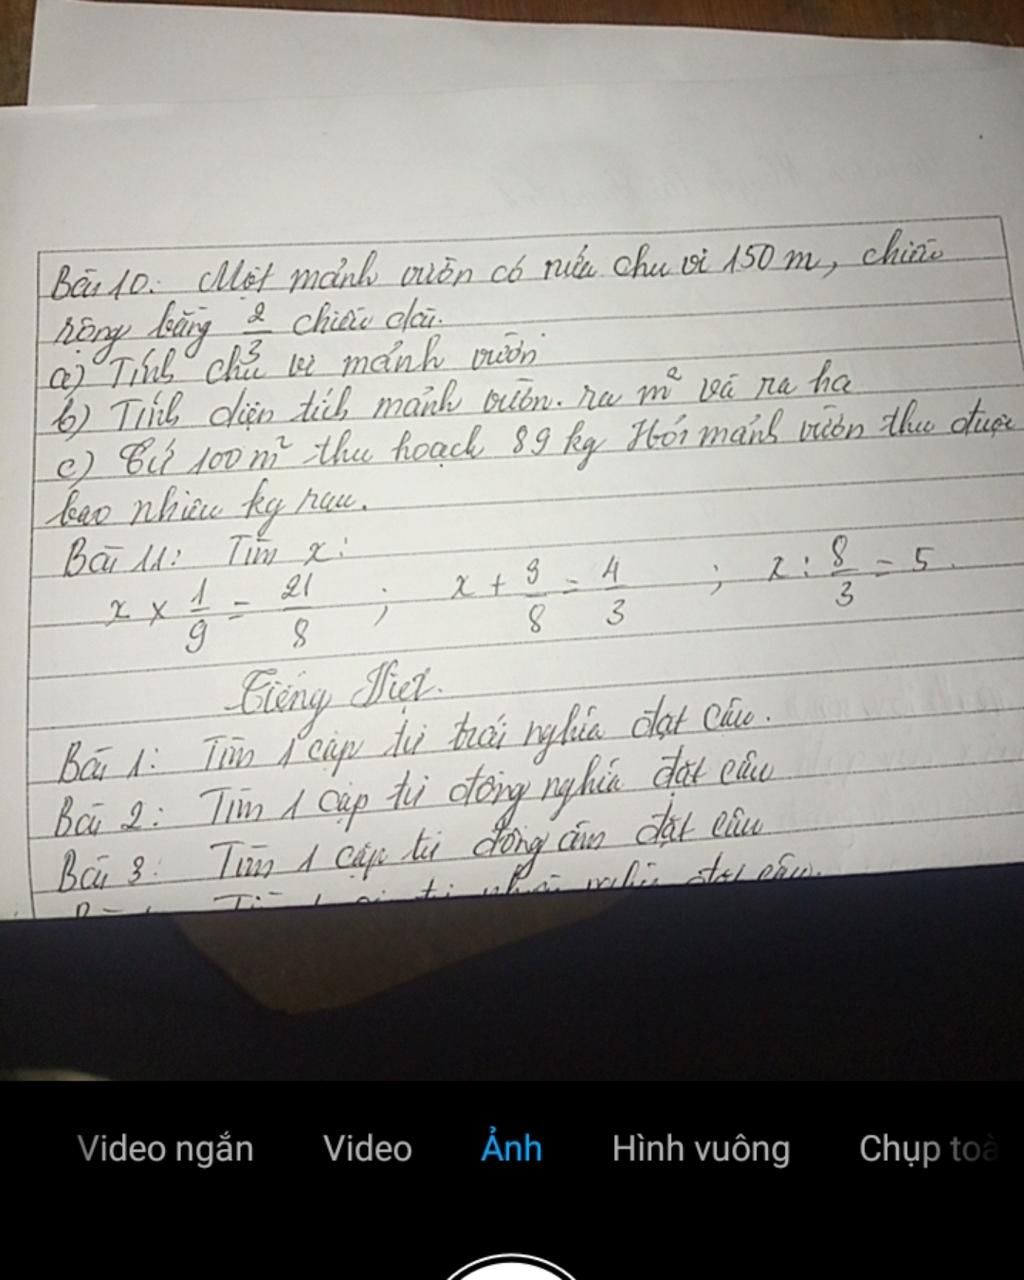 Bài 10. Một mảnh vườn có nửa chu vi 150 m, chiều
rộng bằng 2/3 chiều dài.
a) Tính chu vi mảnh vườn
b) Tính diện tích mảnh vườn. ra m² và ra ha
c) Cứ 100 m² thu hoạch 89 kg Hỏi mảnh vườn thu được
bao nhiêu kg rau.
Bài 11: Tìm x:
x × 1/9 = 21/8 ; x + 9/8 = 4/3 ; x : 8/3 = 5.
Tiếng Việt.
Bài 1: Tìm 1 cặp từ trái nghĩa đặt câu.
Bài 2: Tìm 1 cặp từ đồng nghĩa đặt câu
Bài 3: Tìm 1 cặp từ đồng âm đặt câu
đặt câu.
Video ngắn Video Ảnh Hình vuông Chụp toà